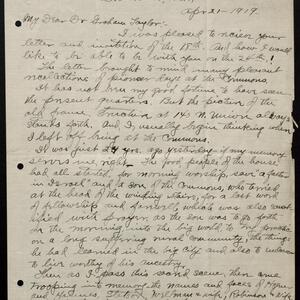 Apr 21 - 1919.
My Dear Dr Graham Taylor:
I was pleased to receive your
letter and invitation of the 18th. And how I would
like to be able to be with you on the 26th!
The letter brought to mind many pleasant
recollections of pioneer days at the Commons.
It has not been my good fortune to have seen
the present quarters. But the picture of the
old frame structure at 140 N. Union always
stands forth. And, I usually begin thinking when
I left off being at the Commons.
It was 24 yrs ago yesterday if my memory
serves me right. The good people of the house
had all started, for morning worship, save "a father
in Israel" and a son of the Commons, who tarried
at the head of the winding stairs, for a last word
of fellowship and
with prayer as the son was to go forth
in the morning into the big world, to
on a long suffering rural community, the things
he had learned in the big city and also to endeavor
to live worthy of his meeting.
Then as I pass this sacred scene, then come
trooping into memory the names and faces of
and Robinson